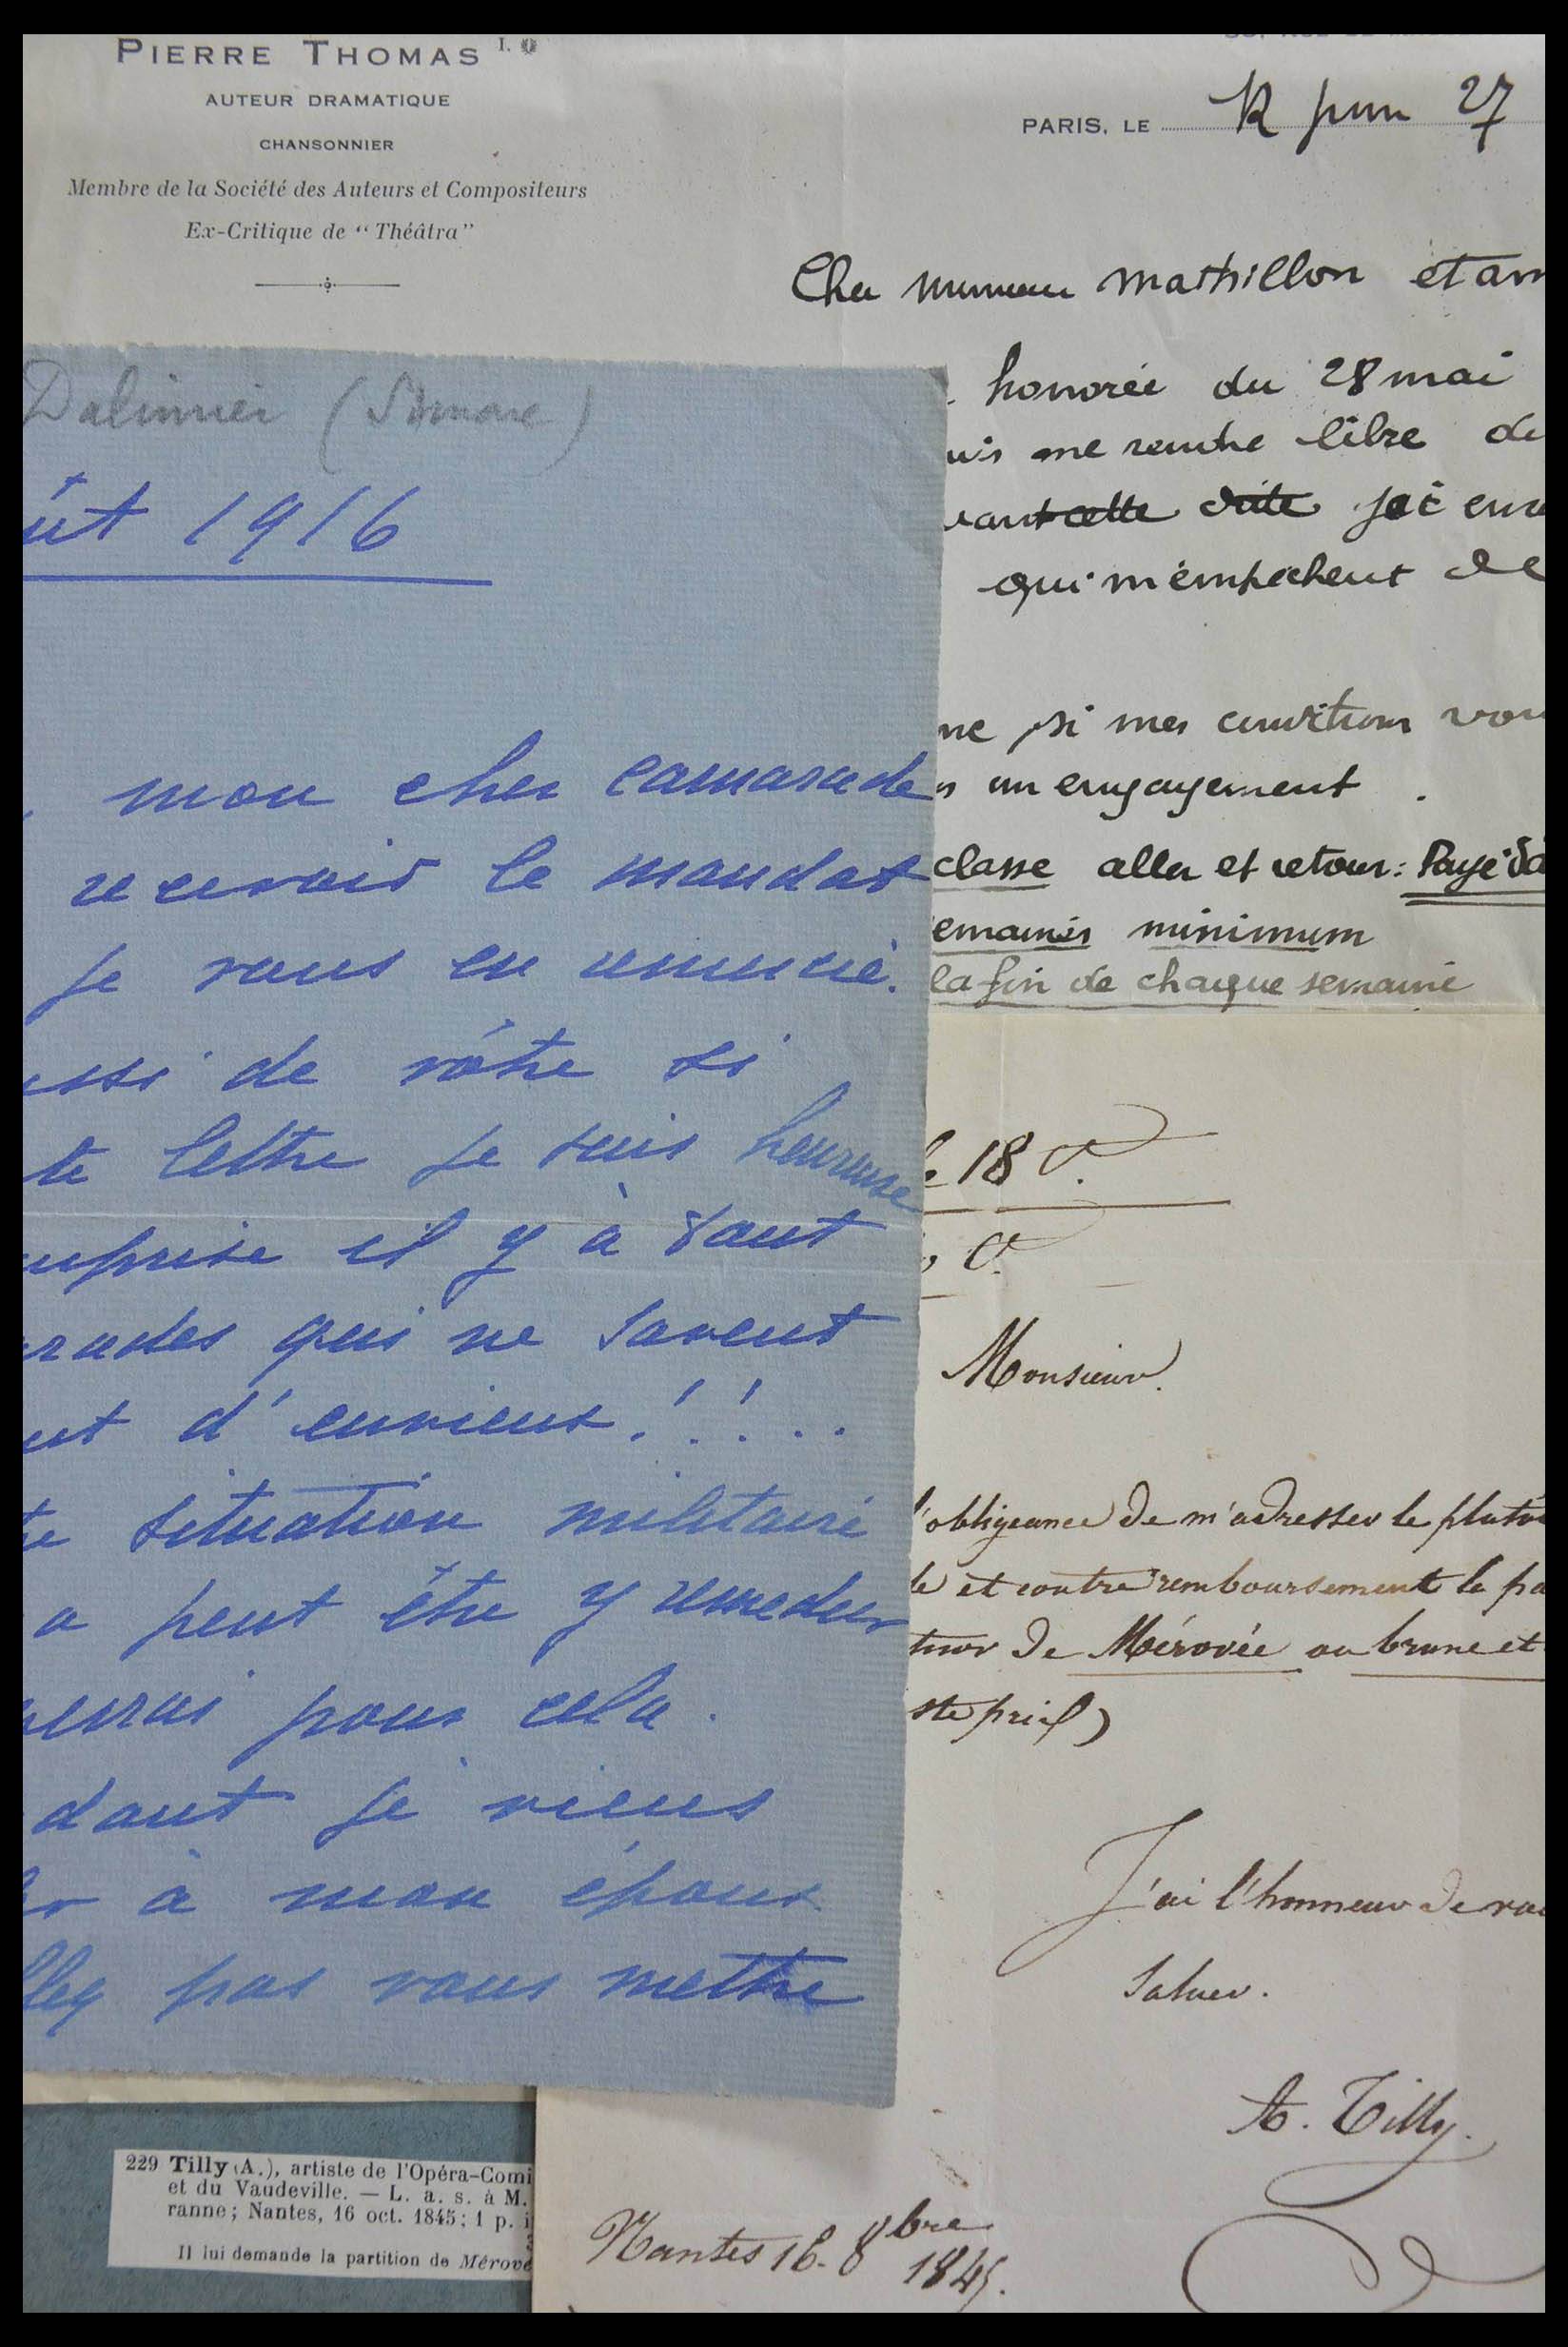 PIERRE THOMAS I.
AUTEUR DRAMATIQUE
CHANSONNIER
Membre de la Société des Auteurs et Compositeurs
Ex-Critique de "Théâtra"
PARIS, LE 12 juin 27
Cher monsieur Mathillon et am
honorée du 28 mai
uis me rendre libre de
vant cette date j'ai enco
qui m'empêchent de
ne si mes conditions vou
s un engagement.
classe aller et retour: Payé
emaines minimum
la fin de chaque semaine
Dalinnier (Simone)
ût 1916
mon cher camarade
recevoir le mandat
je vous en remercie.
ussi de vôtre si
te lettre je suis heureuse
uprise il y à tant
rades qui ne savent
ut d'envieux!!..
te situation militaire
a peut être y remedier
pour cela.
dant je viens
à mon époux
lleq pas vous mettre
18 C.
C.
Monsieur.
l'obligeance de m'adresser le plutô
le et contre remboursement le pa
teur de Mérovée ou brune et
ste prix)
J'ai l'honneur de vou
Saluer.
A. Tilly.
Nantes 16. 8bre 1845.
229 Tilly (A.), artiste de l'Opéra-Comi
et du Vaudeville. — L. a. s. à M.
ranne; Nantes, 16 oct. 1845; 1 p. i
Il lui demande la partition de Mérové